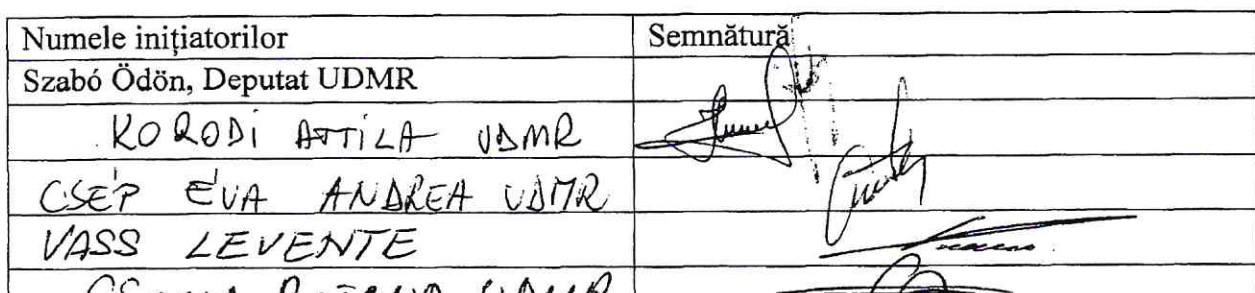 Numele inițiatorilor Semnătură
Szabó Ödön, Deputat UDMR
KORODI ATTILA UDMR
CSÉP ÉVA ANDREA UDMR
VASS LEVENTE
UDMR